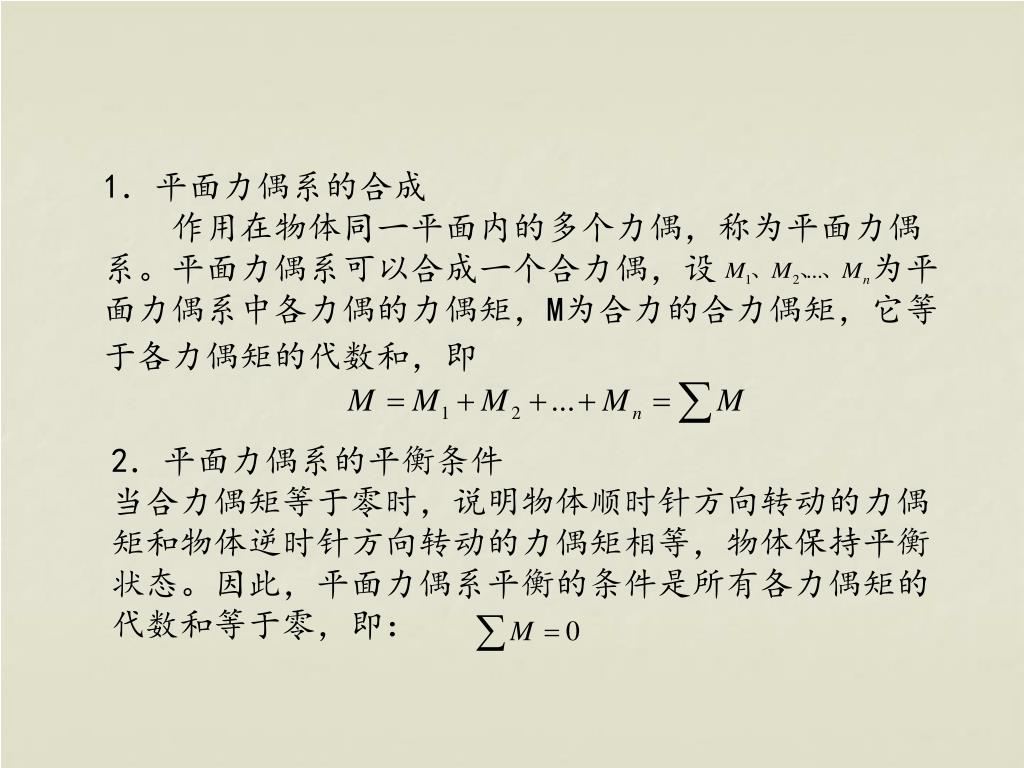 1. 平面力偶系的合成
作用在物体同一平面内的多个力偶，称为平面力偶
系。平面力偶系可以合成一个合力偶，设 M₁、M₂、...、Mₙ 为平
面力偶系中各力偶的力偶矩，M为合力的合力偶矩，它等
于各力偶矩的代数和，即
M = M₁ + M₂ + ... + Mₙ = ∑M
2. 平面力偶系的平衡条件
当合力偶矩等于零时，说明物体顺时针方向转动的力偶
矩和物体逆时针方向转动的力偶矩相等，物体保持平衡
状态。因此，平面力偶系平衡的条件是所有各力偶矩的
代数和等于零，即： ∑M = 0